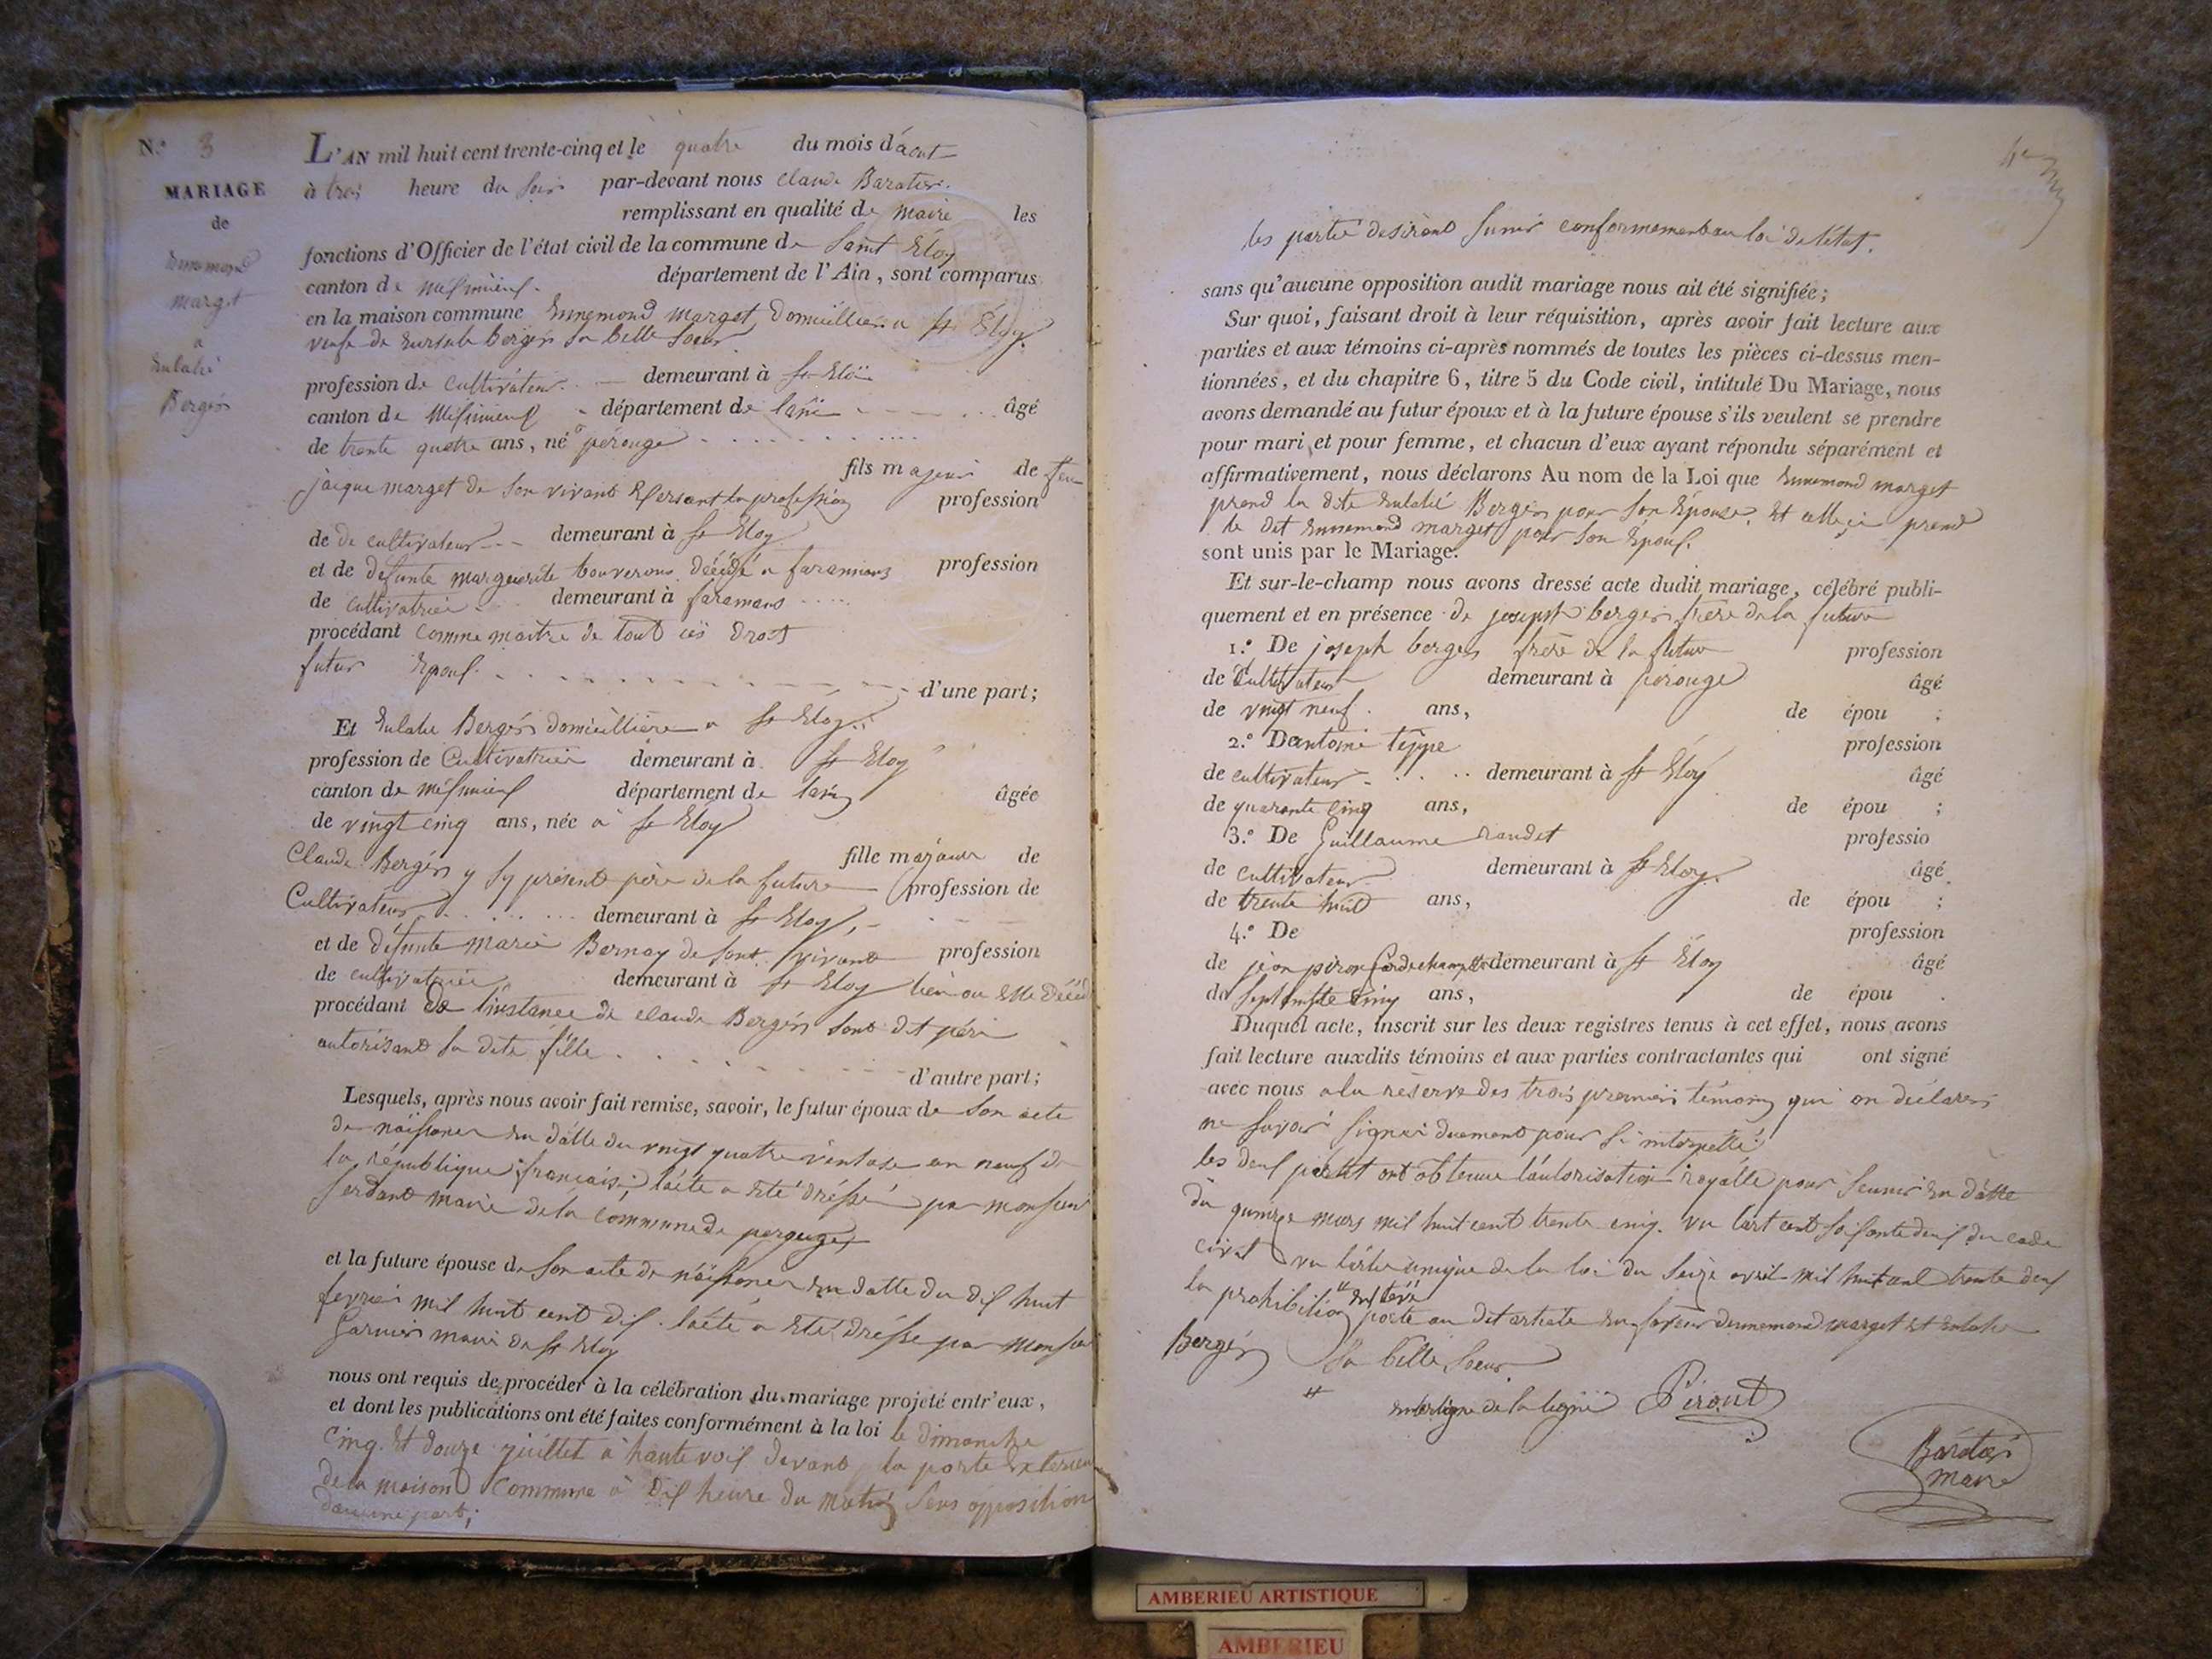 N.º 3
MARIAGE
de
Ennemond
marget
a
Eulalie
Bergér
L'AN mil huit cent trente-cinq et le quatre du mois d'aout
à trois heure du soir par-devant nous Claude Baratier
remplissant en qualité de maire les
fonctions d'Officier de l'état civil de la commune de Saint Eloy
canton de département de l'Ain, sont comparus
en la maison commune Ennemond marget St Eloy
Bergér sa belle soeur
profession de Cultivateur demeurant à St Eloi
canton de département de âgé
de trente quatre ans, né à pérouge
fils majeur de feu
jacque marget de son vivant la profession profession
de de cultivateur demeurant à St Eloy
et de défunte marguerite décédé a profession
de cultivatrice demeurant à faramans
procédant comme maitre de tout droit
futur Epous d'une part;
Et Eulalie Bergér a St Eloy
profession de Cultivatrice demeurant à St Eloy
canton de département de âgée
de vingt cinq ans, née a St Eloy
fille majeure de
Claude Bergér y sy présent père de la future profession de
Cultivateur demeurant à St Eloy
et de défunte marie Bernay de vivant profession
de cultivatrice demeurant à St Eloy lieu ou elle
procédant de Claude Bergér sont dit père
autorisant sa dite fille
d'autre part;
Lesquels, après nous avoir fait remise, savoir, le futur époux de son acte
de naissance en datte du vingt quatre ventose an neuf de
la république française, l'acte a été dréssé par monsieur
maire de la commune de perouge
et la future épouse de son acte de naissance en datte du dis huit
fevrier mil huit cent dis. l'acte a été dréssé par
Garnier maire de St Eloy
nous ont requis de procéder à la célébration du mariage projeté entr'eux,
et dont les publications ont été faites conformément à la loi le dimanche
cinq et douze juillet a haute vois devant la porte
de la maison commune à dis heure du matin sens opposition
d'aucune part;
les partie desirent sunir conformement au loi de l'état.
sans qu'aucune opposition audit mariage nous ait été signifiée;
Sur quoi, faisant droit à leur réquisition, après avoir fait lecture aux
parties et aux témoins ci-après nommés de toutes les pièces ci-dessus men-
tionnées, et du chapitre 6, titre 5 du Code civil, intitulé Du Mariage, nous
avons demandé au futur époux et à la future épouse s'ils veulent se prendre
pour mari et pour femme, et chacun d'eux ayant répondu séparément et
affirmativement, nous déclarons Au nom de la Loi que Ennemond marget
prend la dite Eulalie Bergér pour son Epouse. Et prend
le dit Ennemond marget pour son Epous.
sont unis par le Mariage.
Et sur-le-champ nous avons dressé acte dudit mariage, célébré publi-
quement et en présence de joseph bergér frère de la future
1.º De joseph bergér frère de la future profession
de Cultivateur demeurant à pérouge âgé
de vingt neuf ans, de épou ;
2.º Dantoine teppe profession
de cultivateur demeurant à St Eloy âgé
de quarante cinq ans, de épou ;
3.º De Guillaume profession
de cultivateur demeurant à St Eloy âgé
de trente huit ans, de épou ;
4.º De profession
de demeurant à St Eloy âgé
de ans, de épou
Duquel acte, inscrit sur les deux registres tenus à cet effet, nous avons
fait lecture auxdits témoins et aux parties contractantes qui ont signé
avec nous a la réserve des trois premiers témoins qui on déclarer
ne savoir signer duement pour se interpellé
les deus ont obtenue l'autorisation royalle pour en datte
du quinze mars mil huit cent trente cinq. vu l'art cent soisante deus du code
civil vu unique de la loi du seize avril mil huit cent trente deus
la prohibition au dit article en faveur dennemond marget et Eulalie
Bergér sa belle soeur
de la ligne Piront
Baratier
maire
AMBERIEU ARTISTIQUE
AMBERIEU